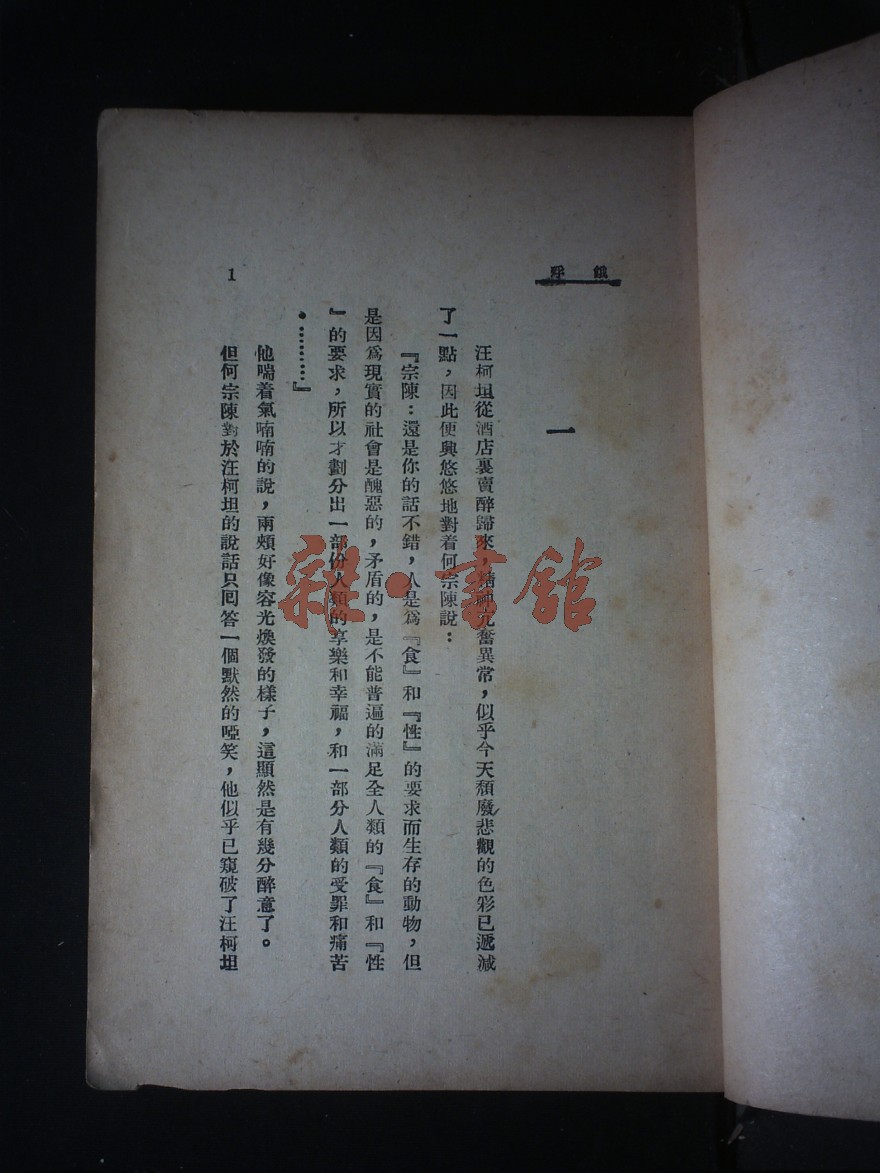 餓 殍
一
汪柯坦從酒店裏賣醉歸來，精神亢奮異常，似乎今天頹廢悲觀的色彩已遞減
了一點，因此便興悠悠地對着何宗陳說：
『宗陳：還是你的話不錯，人是爲『食』和『性』的要求而生存的動物，但
是因爲現實的社會是醜惡的，矛盾的，是不能普遍的滿足全人類的『食』和『性
』的要求，所以才劃分出一部份人類的享樂和幸福，和一部分人類的受罪和痛苦
。………』
他喘着氣喃喃的說，兩頰好像容光煥發的樣子，這顯然是有幾分醉意了。
但何宗陳對於汪柯坦的說話只囘答一個默然的啞笑，他似乎已窺破了汪柯坦
1
雜·書館